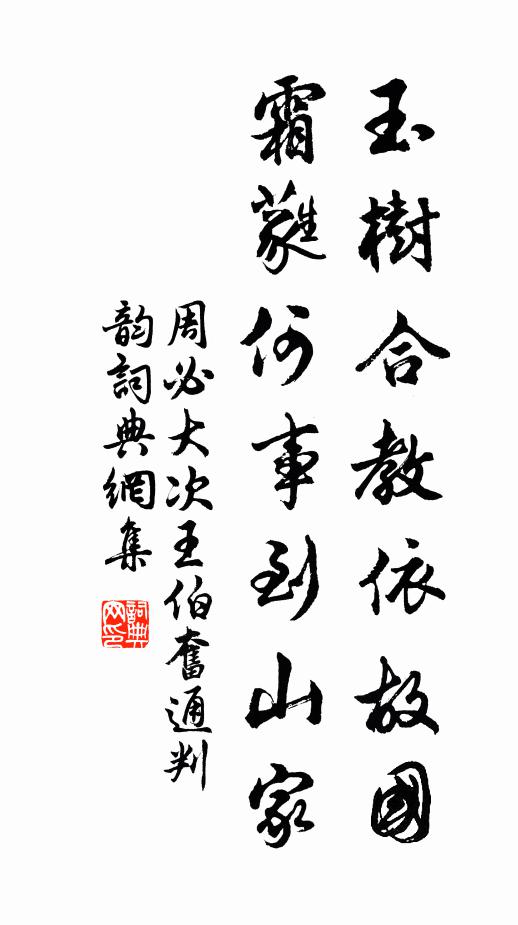 玉樹合教依故國
霜蕤何事到山家
周必大次王伯奮通判韵
詞典網集
詞典網印